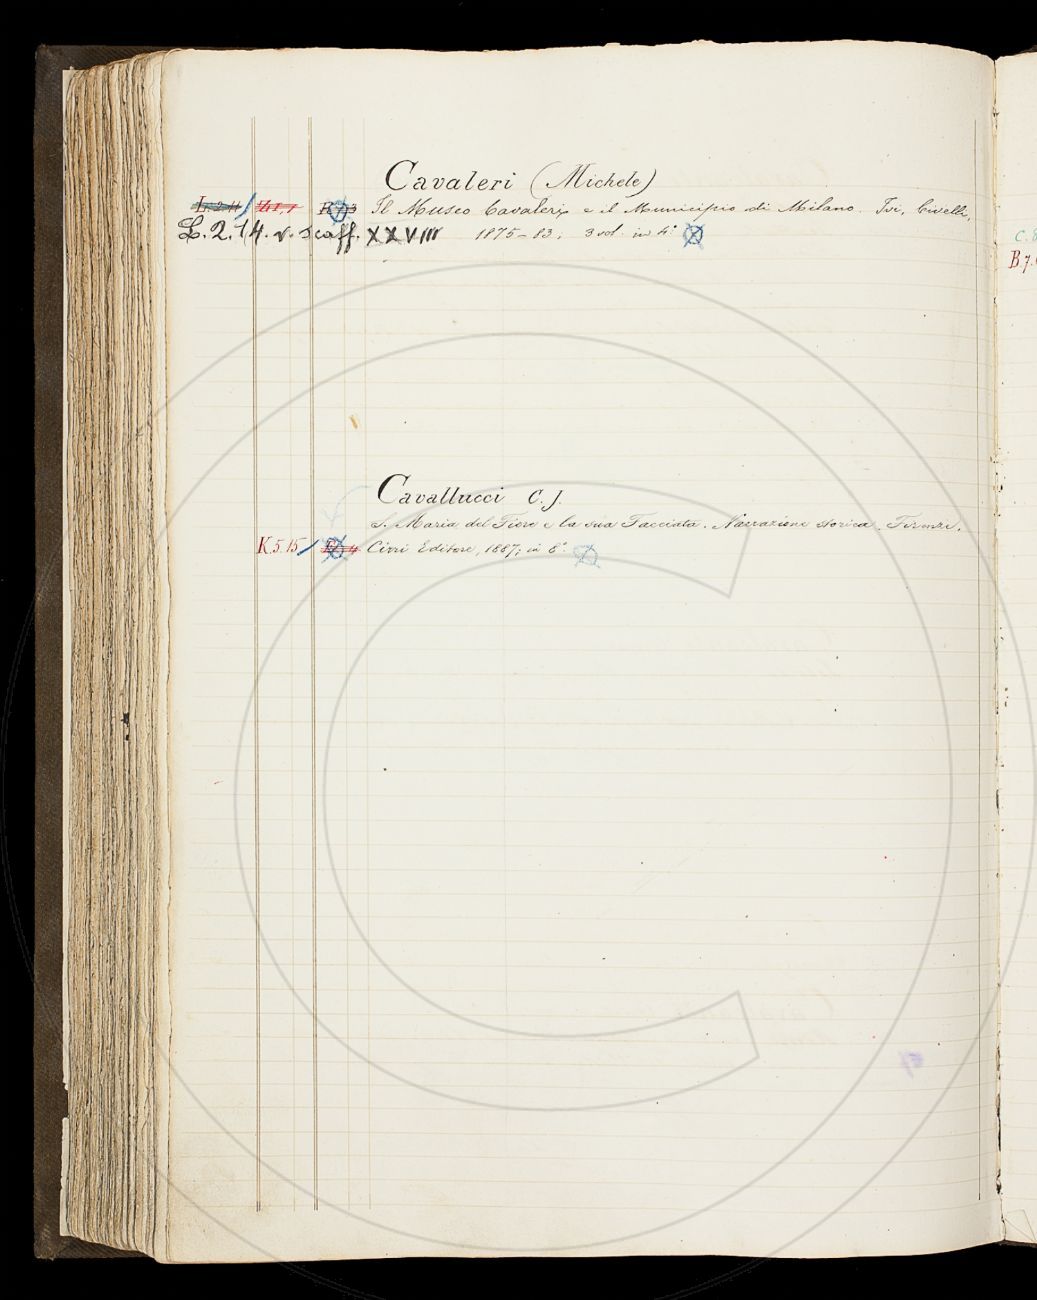 Cavaleri (Michele)
L. 2. 11 Il Museo Cavaleri e il Municipio di Milano. Ivi, Civelli,
L. 2. 14. v. scaff. XXVIII 1875-83; 3 vol. in 4°
C. 8
B 7.
Cavallucci C. J.
S. Maria del Fiore e la sua Facciata. Narrazione storica. Firenze,
K. 5. 15 Cirri Editore, 1887; in 8°.